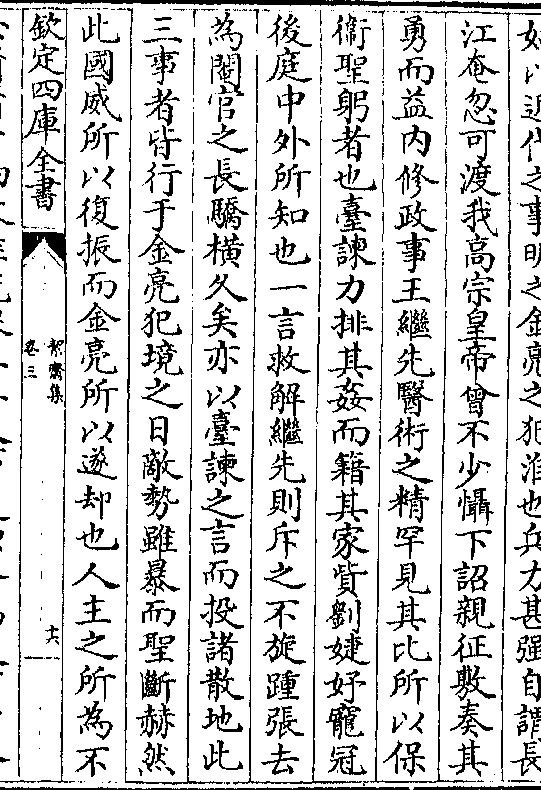 以近代之事明之金亮之犯淮也兵力甚强自謂長
江奄忽可渡我高宗皇帝曾不少懾下詔親征敷奏其
勇而益内修政事王繼先醫術之精罕見其比所以保
衛聖躬者也臺諫力排其姦而籍其家貲劉婕妤寵冠
後庭中外所知也一言救解繼先則斥之不旋踵張去
為閹官之長驕橫久矣亦以臺諫之言而投諸散地此
三事者皆行于金亮犯境之日敵勢雖暴而聖斷赫然
此國威所以復振而金亮所以遂却也人主之所為不
欽定四庫全書
絜齋集
卷三
十六